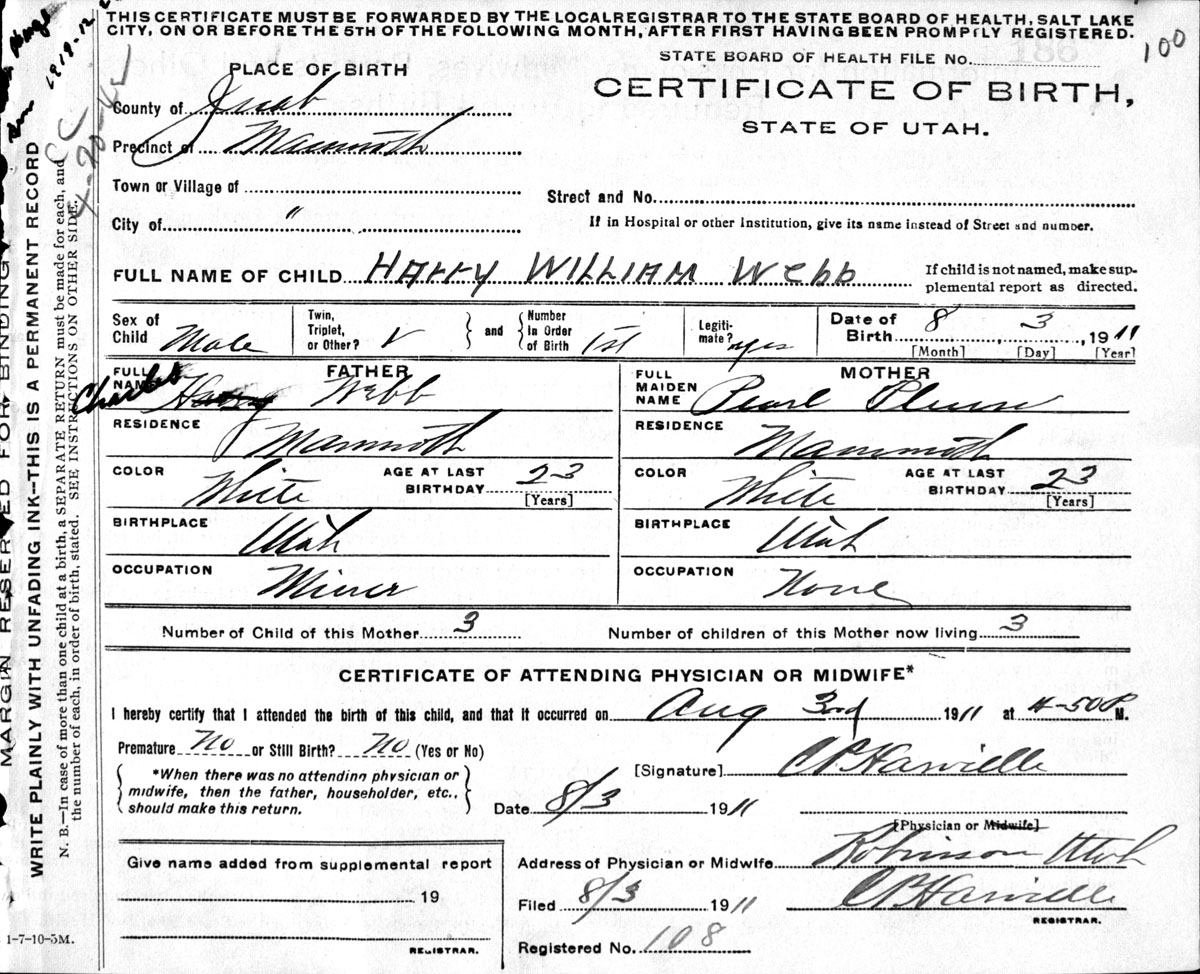 THIS CERTIFICATE MUST BE FORWARDED BY THE LOCAL REGISTRAR TO THE STATE BOARD OF HEALTH, SALT LAKE
CITY, ON OR BEFORE THE 5TH OF THE FOLLOWING MONTH, AFTER FIRST HAVING BEEN PROMPTLY REGISTERED.
100
STATE BOARD OF HEALTH FILE No.
PLACE OF BIRTH
CERTIFICATE OF BIRTH,
STATE OF UTAH.
County of Juab
Precinct of Mammoth
Town or Village of
Street and No.
City of "
If in Hospital or other Institution, give its name instead of Street and number.
FULL NAME OF CHILD HARRY WILLIAM Webb
If child is not named, make sup-
plemental report as directed.
Sex of Child Male
Twin, Triplet, or Other? √
and
Number In Order of Birth 1st
Legiti-mate? yes
Date of Birth 8 3, 1911
[Month] [Day] [Year]
FATHER
FULL NAME Charles Harry Webb
RESIDENCE Mammoth
COLOR White AGE AT LAST BIRTHDAY 23
[Years]
BIRTHPLACE Utah
OCCUPATION Miner
MOTHER
FULL MAIDEN NAME Pearl
RESIDENCE Mammoth
COLOR White AGE AT LAST BIRTHDAY 23
[Years]
BIRTHPLACE Utah
OCCUPATION None
Number of Child of this Mother 3 Number of children of this Mother now living 3
CERTIFICATE OF ATTENDING PHYSICIAN OR MIDWIFE*
I hereby certify that I attended the birth of this child, and that it occurred on Aug 3rd 1911 at 4-50 P M.
Premature No or Still Birth? No (Yes or No)
*When there was no attending physician or
midwife, then the father, householder, etc.,
should make this return.
[Signature]
Date 8/3 1911
[Physician or Midwife]
Give name added from supplemental report
19
REGISTRAR.
Address of Physician or Midwife Robinson Utah
Filed 8/3 1911
REGISTRAR.
Registered No. 108
1-7-10-5M.
MARGIN RESERVED FOR BINDING
WRITE PLAINLY WITH UNFADING INK—THIS IS A PERMANENT RECORD
N. B.—In case of more than one child at a birth, a SEPARATE RETURN must be made for each, and
the number of each, in order of birth, stated. SEE INSTRUCTIONS ON OTHER SIDE.